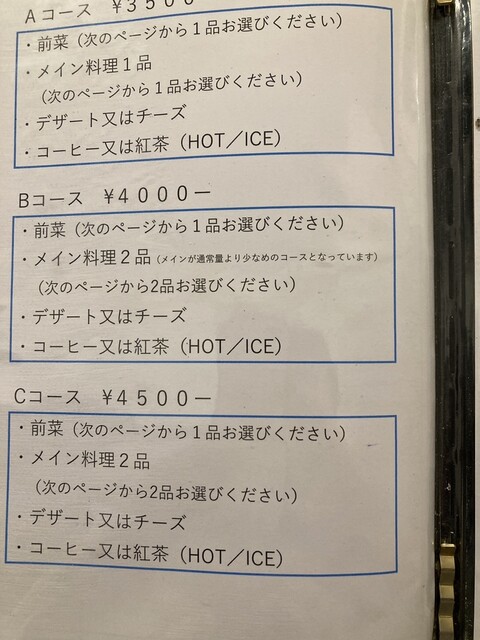 Aコース　¥3500ー
・前菜（次のページから１品お選びください）
・メイン料理１品
（次のページから１品お選びください）
・デザート又はチーズ
・コーヒー又は紅茶（HOT／ICE）
Bコース　¥４０００ー
・前菜（次のページから１品お選びください）
・メイン料理２品（メインが通常量より少なめのコースとなっています）
（次のページから2品お選びください）
・デザート又はチーズ
・コーヒー又は紅茶（HOT／ICE）
Cコース　¥４５００ー
・前菜（次のページから１品お選びください）
・メイン料理２品
（次のページから2品お選びください）
・デザート又はチーズ
・コーヒー又は紅茶（HOT／ICE）